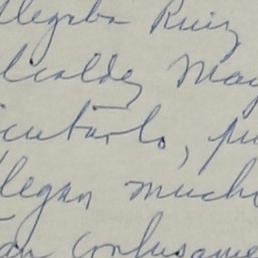 Alegaba Ruiz
lcaldes May
cutarlo, pu
legan mucho
an confusame